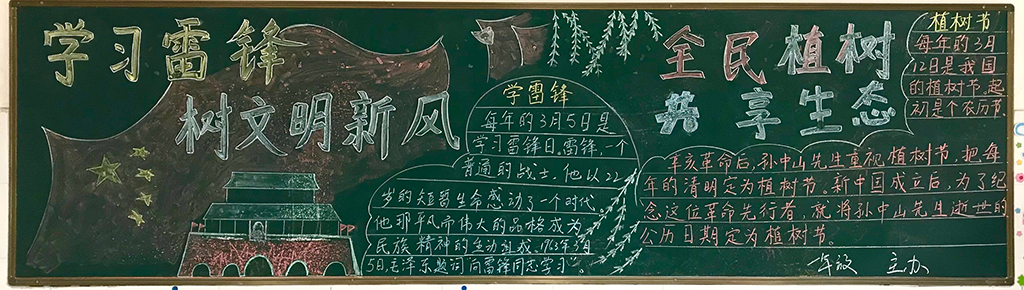 学习雷锋
树文明新风
学雷锋
每年的3月5日是
学习雷锋日。雷锋,一个
普通的战士,他以22
岁的短暂生命感动了一个时代。
他那平凡而伟大的品格成为
民族精神的生动组成。1963年3月
5日,毛泽东题词"向雷锋同志学习"。
全民植树
共享生态
植树节
每年的3月
12日是我国
的植树节,起
初是个农历节
辛亥革命后,孙中山先生重视植树节,把每
年的清明定为植树节。新中国成立后,为了纪
念这位革命先行者,就将孙中山先生逝世的
公历日期定为植树节。
一年级 主办